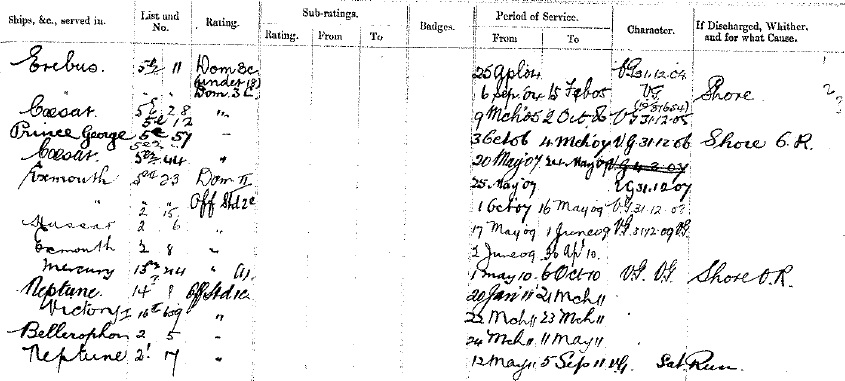 Ships, &c., served in. List and No. Rating. Sub-ratings. Rating. From To Badges. Period of Service. From To Character. If Discharged, Whither, and for what Cause.
Erebus. 11 Dom 3c 25 Apl 04 VG 31.12.04
(under 18)
" " Dom 3 C. 6 Sep. 04 15 Feb 05 VG Shore
Cæsar. 28 " 9 Mch 05 2 Oct 06 VG 31.12.05
12
Prince George 57 - 3 Oct 06 4 Mch 07 VG 31.12.06 Shore O.R.
Cæsar. 44 " 20 May 07 24 May 07
Exmouth 23 Dom II 25 May 07 VG 31.12.07
" " 2 15 Off Std 2c 1 Oct 07 16 May 09 VG 31.12.08
Hussar 2 6 " 17 May 09 1 June 09 VG 31.12.09 VG.
Exmouth 2 8 " 2 June 09 30 Apl 10.
Mercury 15 44 " 1 May 10 6 Oct 10 VG. VG. Shore O.R.
Neptune. 14 8 Off Std 1c 20 Jan 11 21 Mch 11
Victory I 16 609 " 22 Mch 11 23 Mch 11
Bellerophon 2 5 - 24 Mch 11 11 May 11
Neptune 2 17 " 12 May 11 5 Sep 11 VG Sat Run